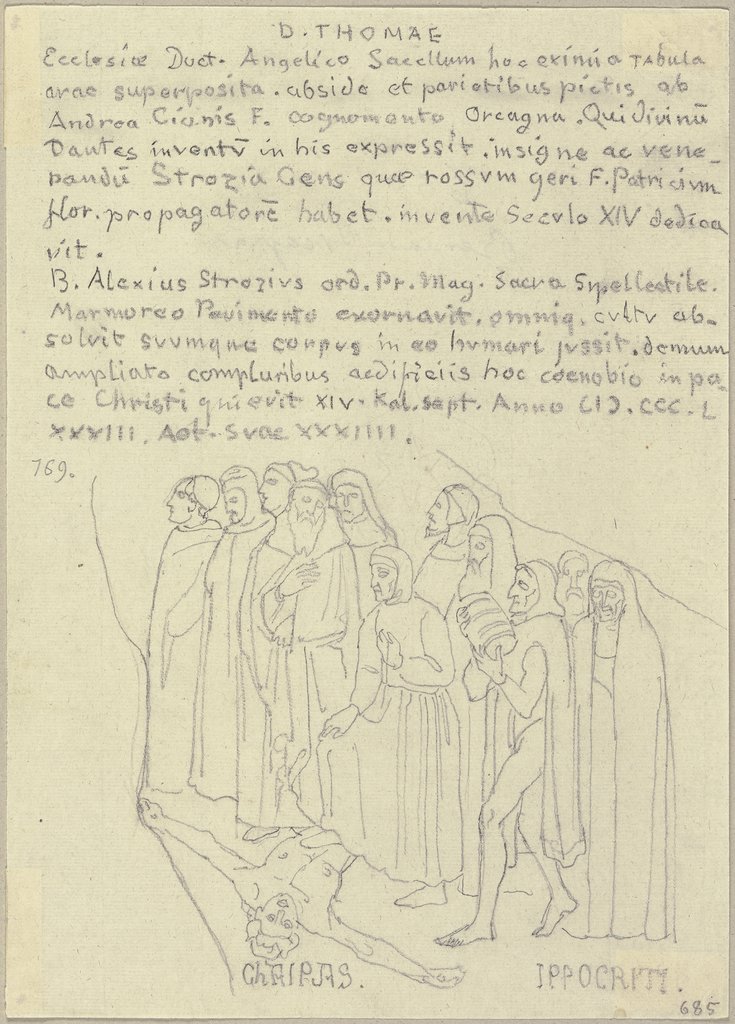 D. THOMAE
Ecclesiæ Doct. Angelico Sacellum hoc eximia TABULA
arae superposita. abside et parietibus pictis ab
Andrea Cionis F. cognomento Orcagna. Qui divinū
Dantes inventū in his expressit. insigne ac vene_
randū Strozia Gens quæ rossvm geri F. Patricivm
flor. propagatorē habet. invente Secvlo XIV dedica
vit.
B. Alexius Strozivs ord. Pr. Mag. Sacra Svpellectile.
Marmoreo Pavimento exornavit. omniq. cvltv ab-
solvit svvmque corpvs in eo hvmari jvssit. demum
ampliato compluribus aedificiis hoc coenobio in pa_
ce Christi quievit XIV. Kal. sept. Anno CIↃ. CCC. L
XXXIII. Aet. Svae XXXIIII.
169.
ChAIPAS.
IPPOCRITI.
685